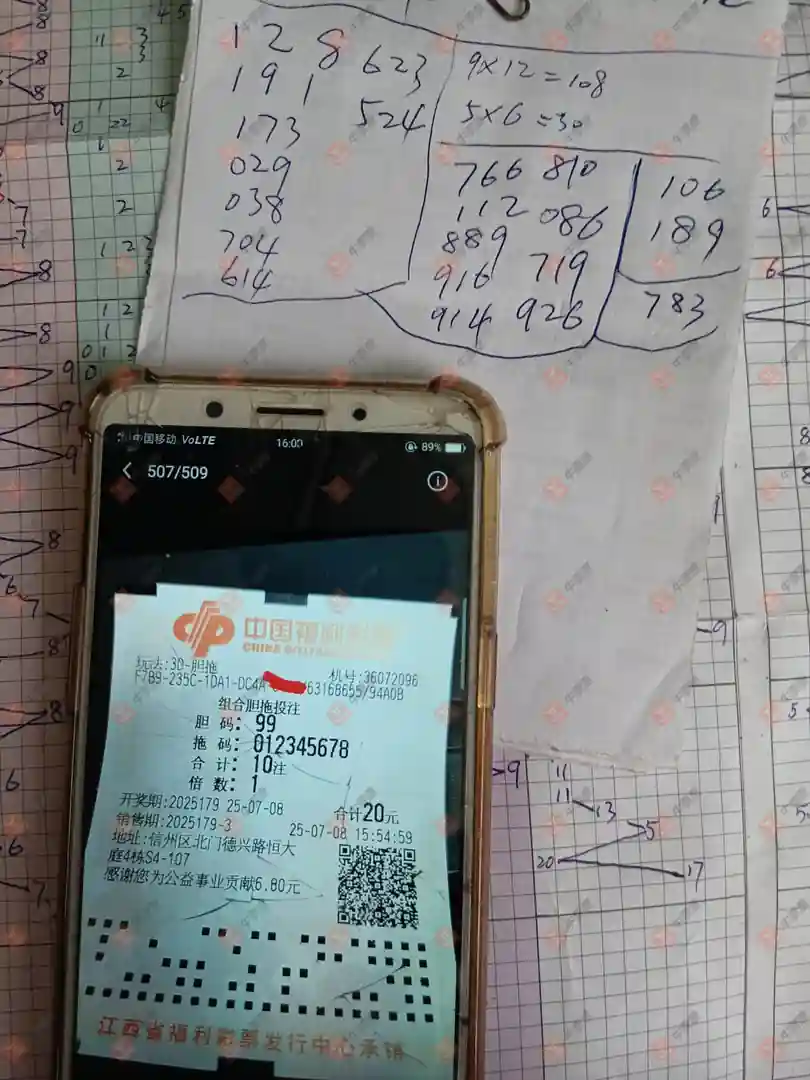 1 2 8 623
1 9 1 524
173
029
038
704
614
9×12=108
5×6=30
766 810
112 086
889 719
916 926
914
106
189
783
中国移动 VoLTE 16:00 89%
507/509
中国福利彩票
玩法:3D-胆拖 机号:36072096
F7B9-235C-1DA1-DC4A 63168655/94A0B
组合胆拖投注
胆 码: 99
拖 码: 012345678
合 计: 10注
倍 数: 1
开奖期:2025179 25-07-08 合计20元
销售期:2025179-3 25-07-08 15:54:59
地址:信州区北门德兴路恒大
庭4栋S4-107
感谢您为公益事业贡献6.80元
江西省福利彩票发行中心承销
11
11
13
5
20
17